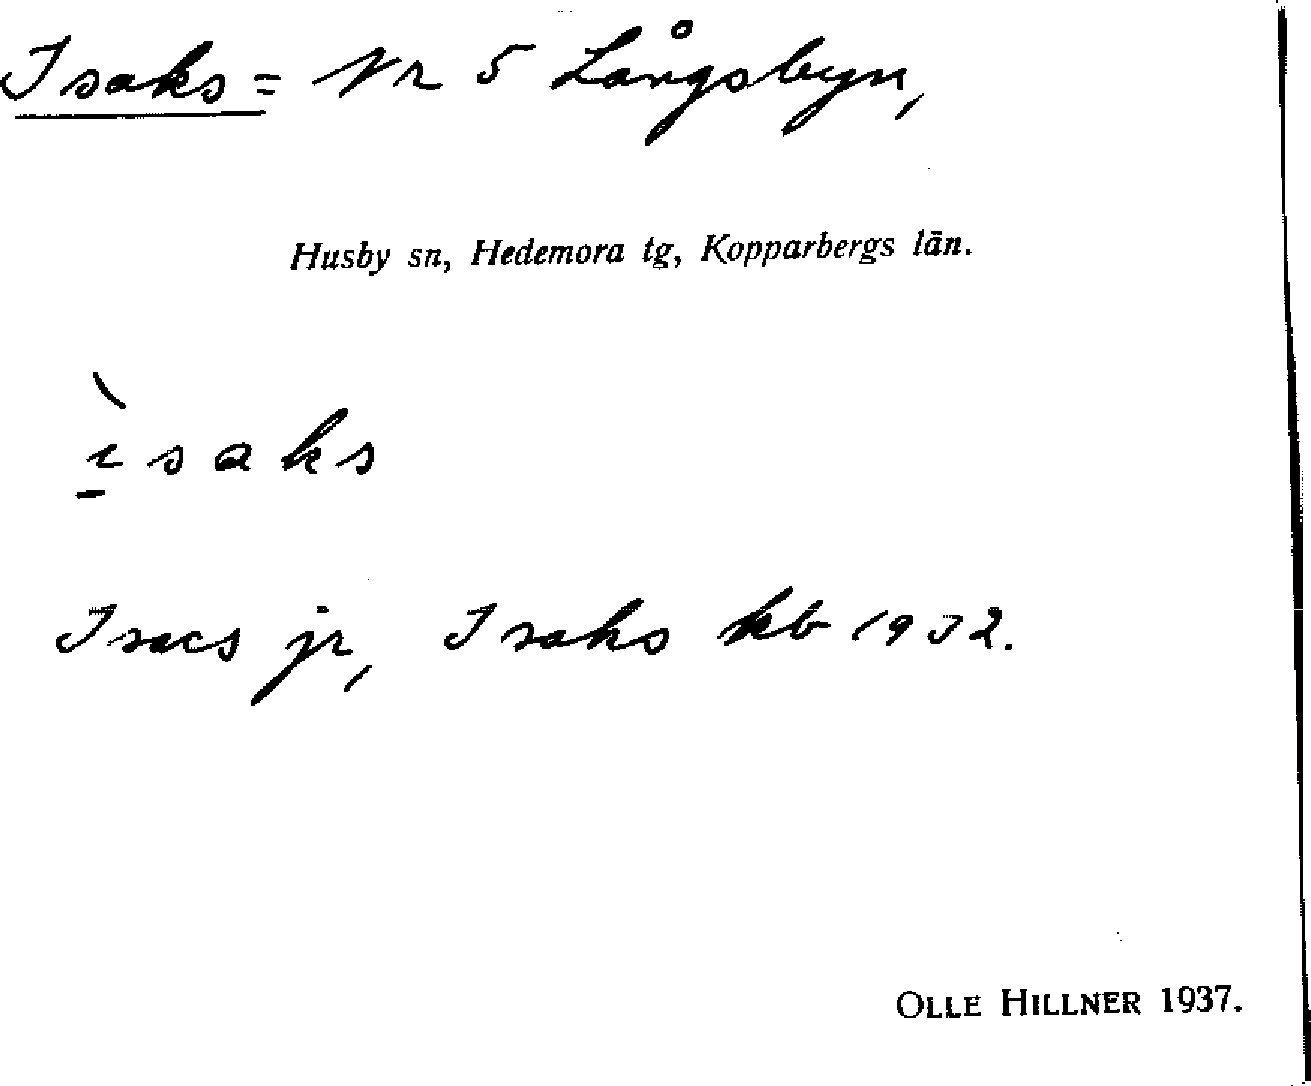 Isaks = Nr 5 Långsbyn,
Husby sn, Hedemora tg, Kopparbergs län.
ìsaks
Isacs jr, Isaks kb 1932.
OLLE HILLNER 1937.